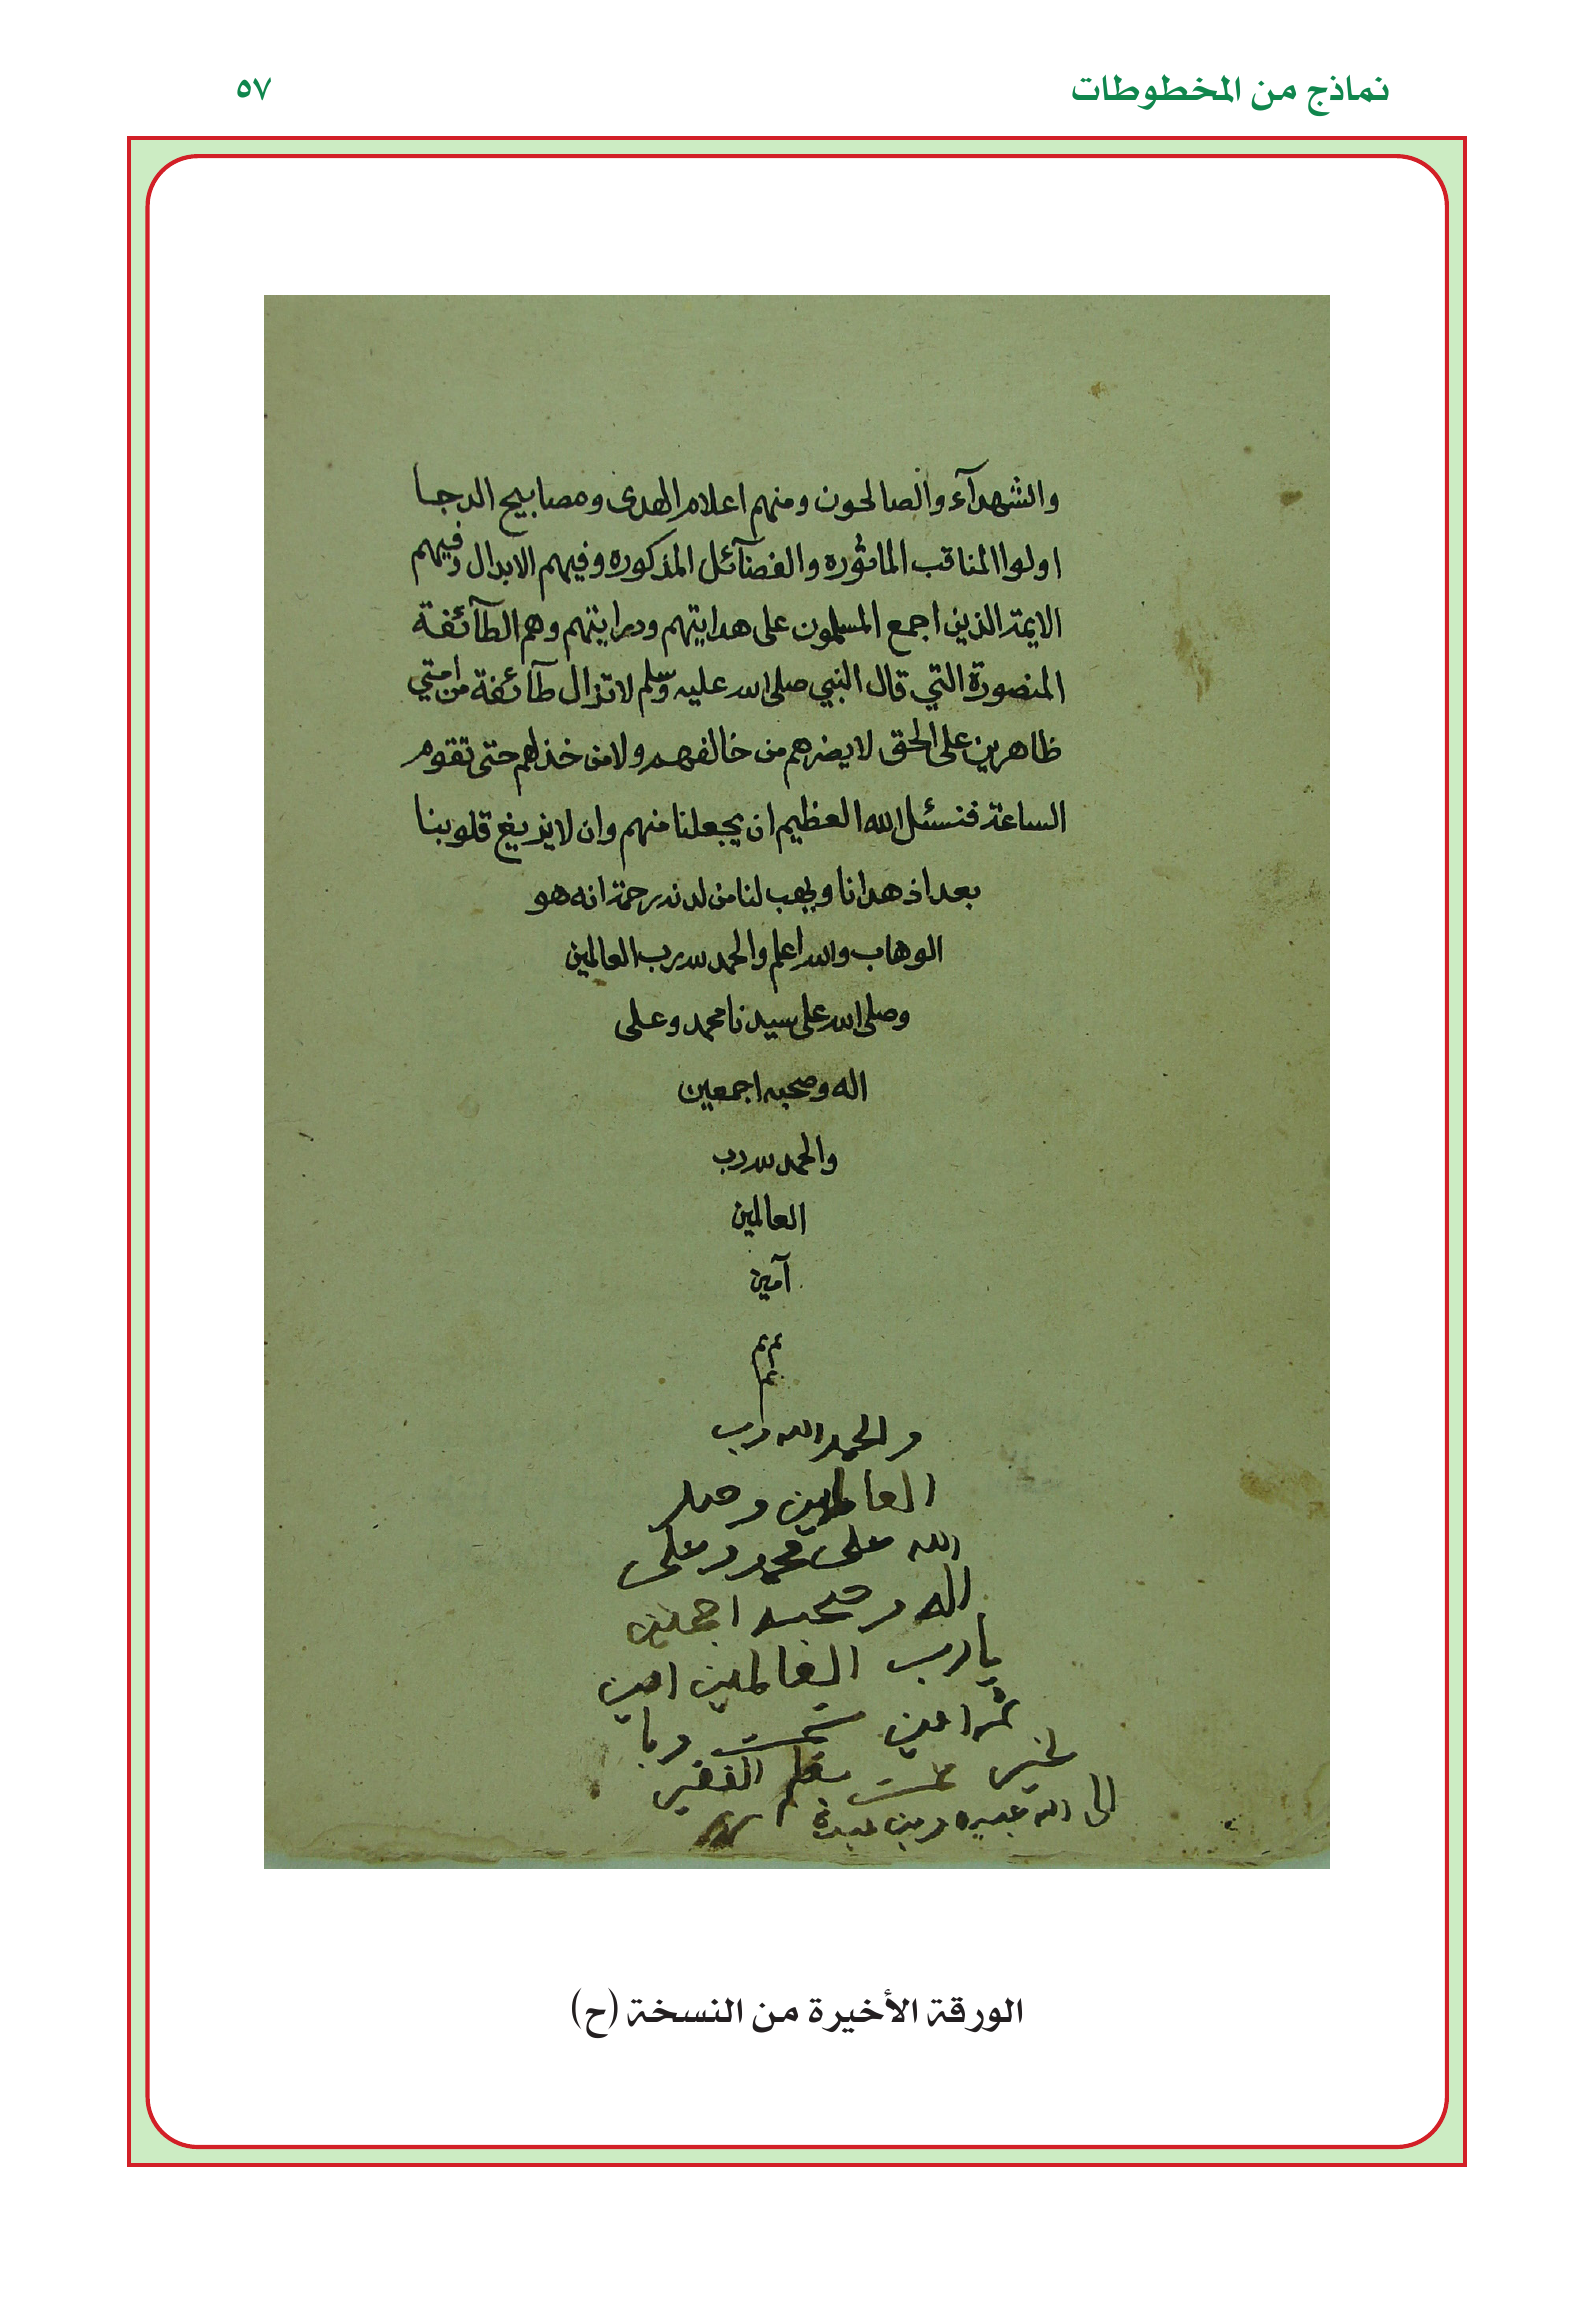 نماذج من المخطوطات ٥٧
والشهدآء والصالحون ومنهم اعلام الهدى ومصابيح الدجا
اولوا المناقب الماثوره والفضآئل المذكوره وفيهم الابدال وفيهم
الايمة الذين اجمع المسلمون على هدايتهم ودرايتهم وهم الطآئفة
المنصورة التي قال النبي صلى الله عليه وسلم لاتزال طآئفة من امتي
ظاهرين على الحق لايضرهم من خالفهم ولا من خذلهم حتى تقوم
الساعة فنسئل الله العظيم ان يجعلنا منهم وان لايزيغ قلوبنا
بعد اذ هدانا ويهب لنا من لدنه رحمة انه هو
الوهاب والله اعلم والحمد لله رب العالمين
وصلى الله على سيدنا محمد وعلى
اله وصحبه اجمعين
والحمد لله رب
العالمين
آمين
والحمد الله رب
العالمين وصلى
الله على محمد وعلى
اله وصحبه اجمعين
يارب العالمين امين
ثم امين تمت وبا
لخير تمت بقلم الفقير
الى الله عبيده وبن عبده
الورقة الأخيرة من النسخة (ح)